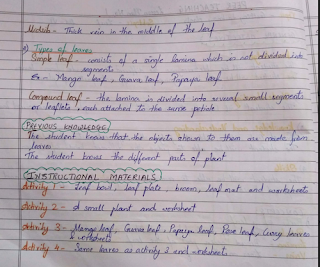 Midrib - Thick vein in the middle of the leaf
3) Types of leaves
Simple leaf - consists of a single lamina which is not divided into
segments
Ex - Mango leaf, Guava leaf, Papaya leaf
Compound leaf - the lamina is divided into several small segments
or leaflets, each attached to the same petiole
PREVIOUS KNOWLEDGE
The student knows that the objects shown to them are made from
leaves
The student knows the different parts of plant
INSTRUCTIONAL MATERIALS
Activity 1 - leaf bowl, leaf plate, broom, leaf mat and worksheets
Activity 2 - A small plant and worksheet
Activity 3 - Mango leaf, Guava leaf, Papaya leaf, Rose leaf, Curry leaves
& worksheets
Activity 4 - Same leaves as activity 3 and worksheets.